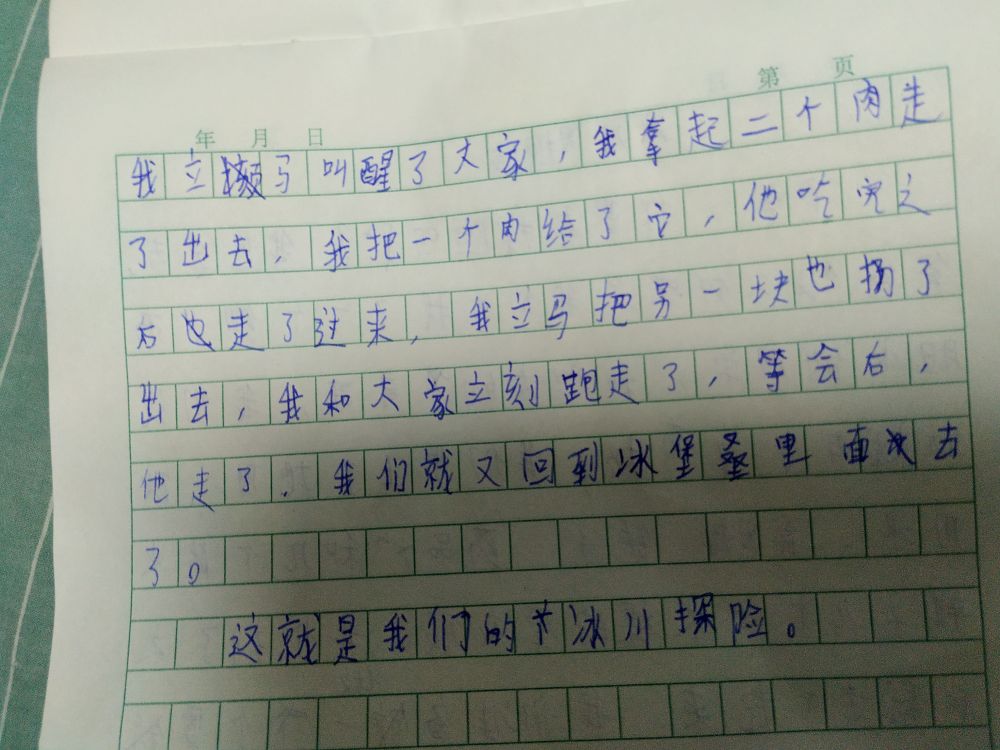 第 页
年 月 日
我立马叫醒了大家，我拿起二个肉走
了出去，我把一个肉给了它，他吃完之
后也走了过来，我立马把另一块也扔了
出去，我和大家立刻跑走了，等会后，
他走了，我们就又回到冰堡里面去
了。
这就是我们的冰川探险。